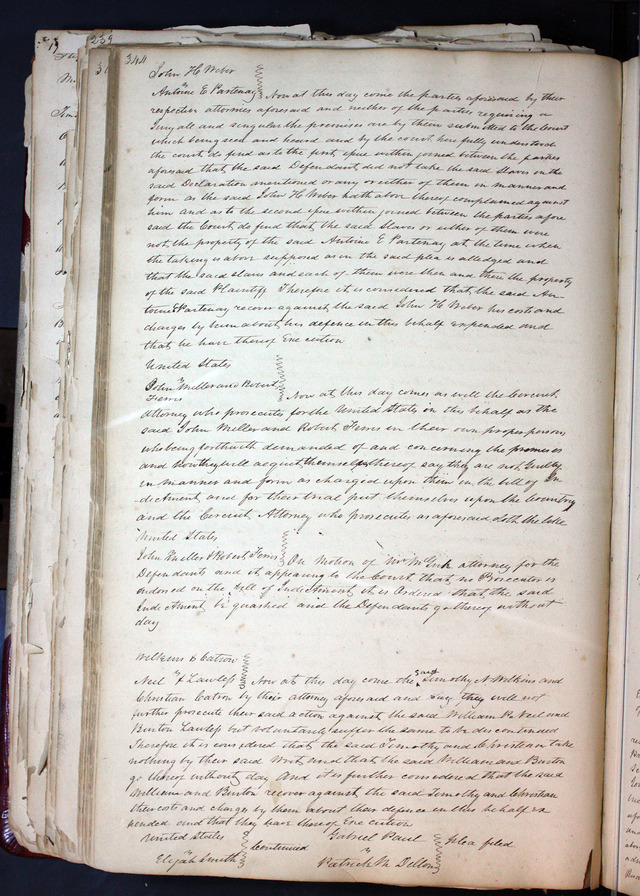 239
344
John H Weber
vs
Antoine E Partenay Now at this day come the parties aforesaid by their
respective attornies aforesaid and neither of the parties requiring a
Jury all and singular the premises are by them submitted to the Court
which being seen and heard and by the court here fully understood
the court do find as to the first issue within joined between the parties
aforesaid that the said Defendant did not take the said Slaves in the
said Declaration mentioned or any or either of them in manner and
form as the said John H Weber hath above thereof complained against
him and as to the second issue within joined between the parties afore
said the Court do find that the said Slaves or either of them were
not the property of the said Antoine E Partenay at the time when
the taking is above supposed as in the said plea is alledged and
that the said slaves and each of them were then and there the property
of the said Plaintiff Therefore it is considered that the said An-
toine E Partenay recover against the said John H Weber his costs and
charges by him about his defence in this behalf expended and
that he have thereof Execution
United States
vs
John Meller and Robert
Ferris Now at this day comes as well the Circuit
attorney who prosecutes for the United States in this behalf as the
said John Meller and Robert Ferris in their own proper persons
who being forthwith demanded of and concerning the premises
and how they will acquit themselves thereof say they are not Guilty
in manner and form as charged upon them in the bill of In-
dictment and for their trial put themselves upon the Country
and the Circuit Attorney who prosecutes as aforesaid doth the like
United States
vs
John Meller & Robert Ferris On Motion of Mr attorney for the
Defendants and it appearing to the Court that no Prosecutor is
indorsed on the bill of Indictment it is Ordered that the said
Indictment be quashed and the Defendants go thereof without
day
Wilkins & Catron
vs
Neil & Lawless Now at this day come the said Timothy N Wilkins and
Christian Catron by their attorney aforesaid and say they will not
further prosecute their said action against the said William R Neil and
Burton Lawless but voluntarily suffer the same to be discontinued
Therefore it is considered that the said Timothy and Christian take
nothing by their said Writ and that the said William and Burton
go thereof without day And it is further considered that the said
William and Burton recover against the said Timothy and Christian
their costs and charges by them about their defence in this behalf ex
pended and that they have thereof Execution
United States
vs
Elijah Smith Continued
Gabriel Paul
vs
Patrick M Dillon plea filed